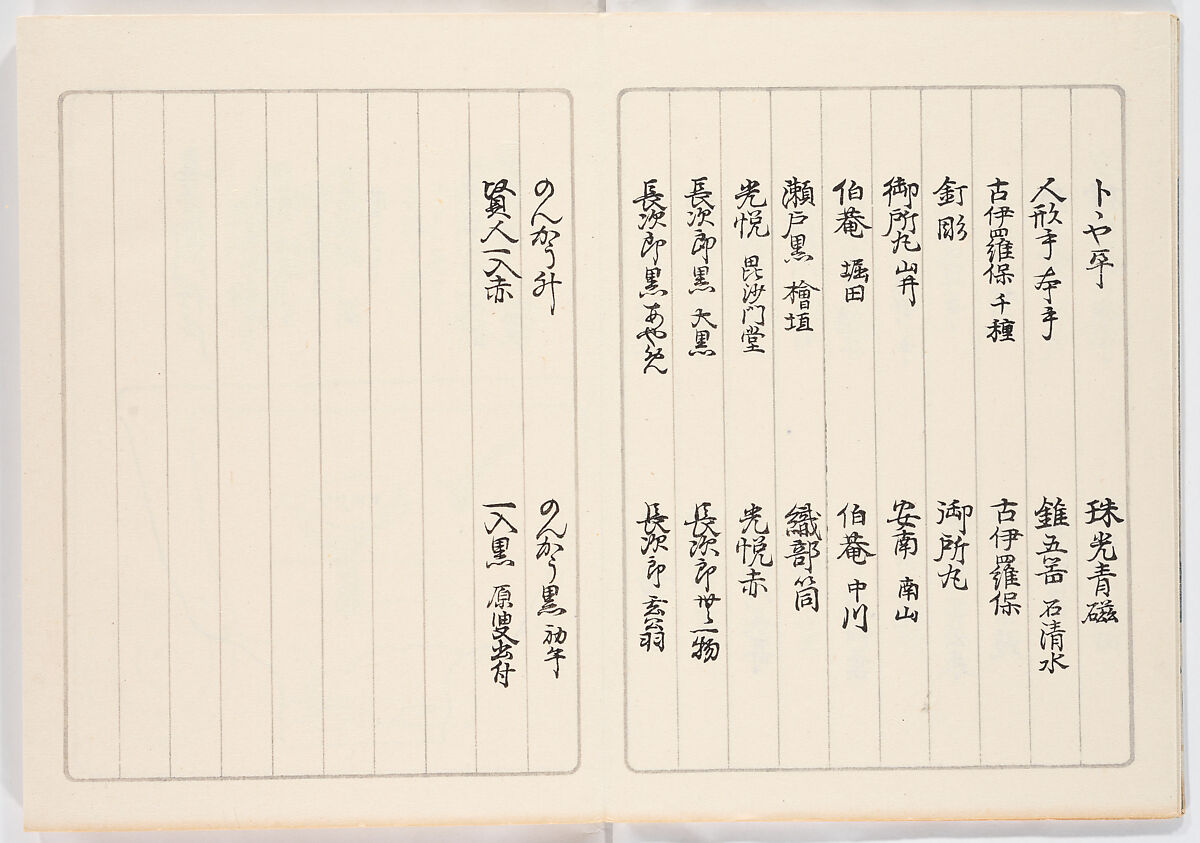 トヽや平 珠光青磁
人形手 本手 錐五器 石清水
古伊羅保 千種 古伊羅保
釘彫 御所丸
御所丸 山井 安南 南山
伯菴 堀田 伯菴 中川
瀬戸黒 檜垣 織部筒
光悦 毘沙門堂 光悦赤
長次郎黒 大黒 長次郎
長次郎黒 長次郎
のんかう 升 のんかう黒 初午
賢人 一入赤 一入黒 原叟書付